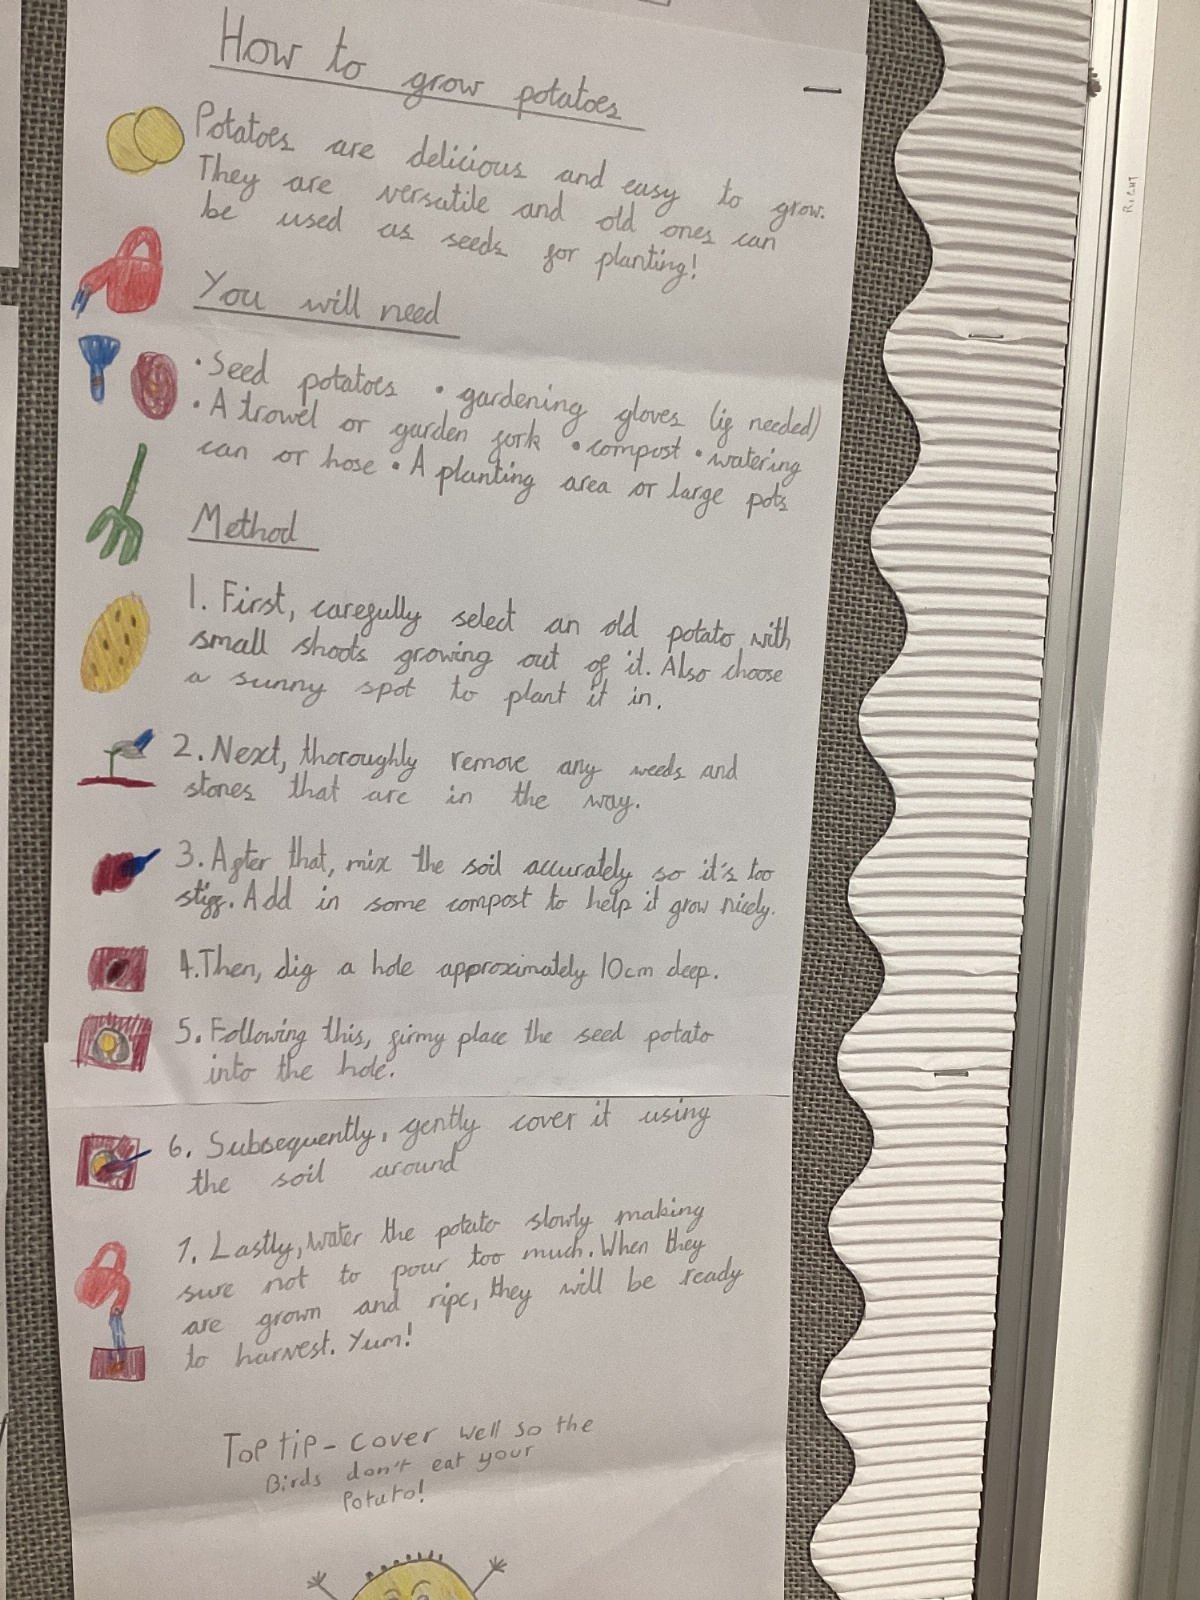 How to grow potatoes
Potatoes are delicious and easy to grow.
They are versatile and old ones can
be used as seeds for planting!
You will need
• Seed potatoes • gardening gloves (if needed)
• A trowel or garden fork • compost • watering
can or hose • A planting area or large pots
Method
1. First, carefully select an old potato with
small shoots growing out of it. Also choose
a sunny spot to plant it in.
2. Next, thoroughly remove any weeds and
stones that are in the way.
3. After that, mix the soil accurately so it's too
stiff. Add in some compost to help it grow nicely.
4. Then, dig a hole approximately 10cm deep.
5. Following this, firmy place the seed potato
into the hole.
6. Subsequently, gently cover it using
the soil around
7. Lastly, water the potato slowly making
sure not to pour too much. When they
are grown and ripe, they will be ready
to harvest. Yum!
Top tip - cover well so the
Birds don't eat your
Potato!
RIGHT